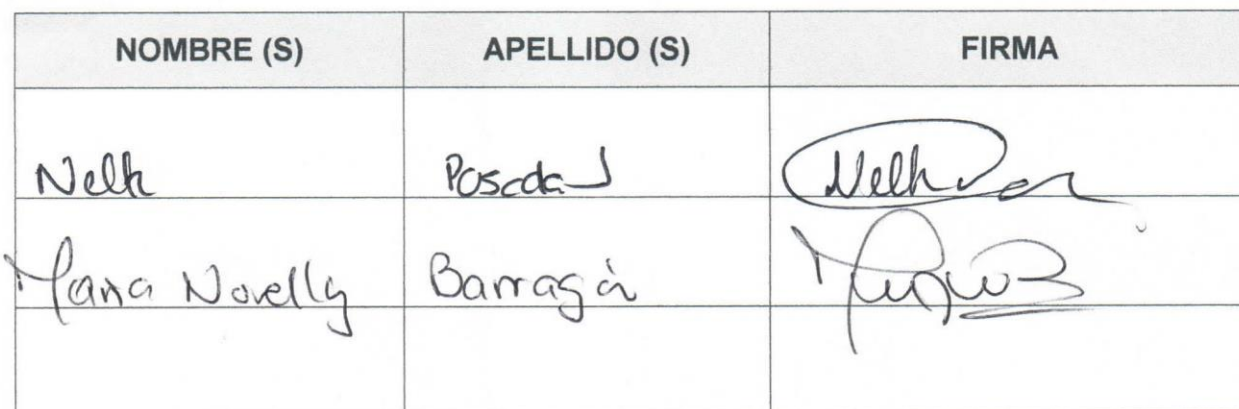 NOMBRE (S) APELLIDO (S) FIRMA
Posada
Maria Novelly Barragán